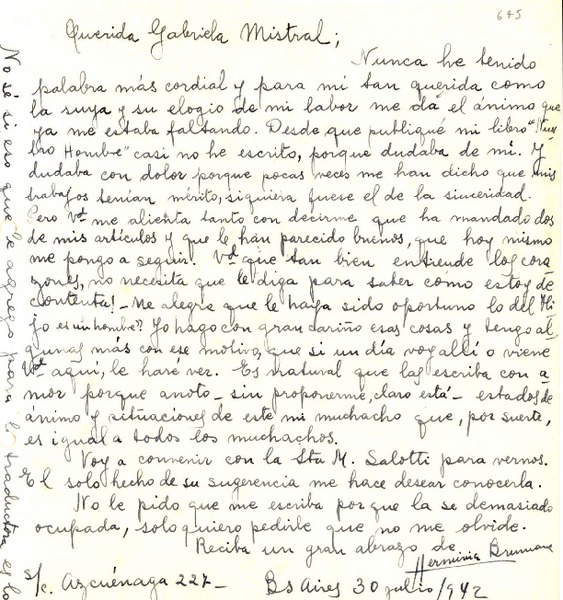 645
Querida Gabriela Mistral;
Nunca he tenido
palabra más cordial y para mí tan querida como
la suya y su elogio de mi labor me dá el ánimo que
ya me estaba faltando. Desde que publiqué mi libro "Nues
tro Hombre" casi no he escrito, porque dudaba de mí. Y
dudaba con dolor porque pocas veces me han dicho que mis
trabajos tenían mérito, siquiera fuese el de la sinceridad.
Pero Vd. me alienta tanto con decirme que ha mandado dos
de mis artículos y que le han parecido buenos, que hoy mismo
me pongo a seguir. Vd. que tan bien entiende los cora
zones, no necesita que le diga para saber cómo estoy de
contenta! - Me alegra que le haya sido oportuno lo del Hi
jo es un hombre? Yo hago con gran cariño esas cosas y tengo al
gunas más con ese motivo, que si un día voy allí o viene
Vd. aquí, le haré ver. Es natural que las escriba con a
mor porque anoto - sin proponerme, claro está - estados de
ánimo y situaciones de este mi muchacho que, por suerte,
es igual a todos los muchachos.
Voy a convenir con la Sta M. Salotti para vernos.
El solo hecho de su sugerencia me hace desear conocerla.
No le pido que me escriba porque la sé demasiado
ocupada, solo quiero pedirle que no me olvide.
Reciba un gran abrazo de
Herminia Brumana
s/c. Azcuénaga 227 - Bs Aires 30 julio/942
No sé si eso que le agrego para la traductora es lo